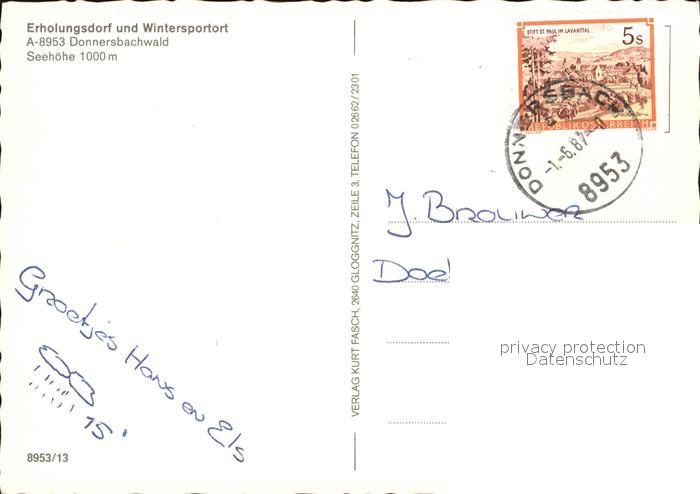 Erholungsdorf und Wintersportort
A-8953 Donnersbachwald
Seehöhe 1000 m
STIFT ST. PAUL IM LAVANTTAL
5 S
REPUBLIK ÖSTERREICH
8953
VERLAG KURT FASCH, 2640 GLOGGNITZ, ZEILE 3, TELEFON 02662/2301
J. Brouwer
Doel
privacy protection
Datenschutz
Groetjes Hans en Els
15°
8953/13